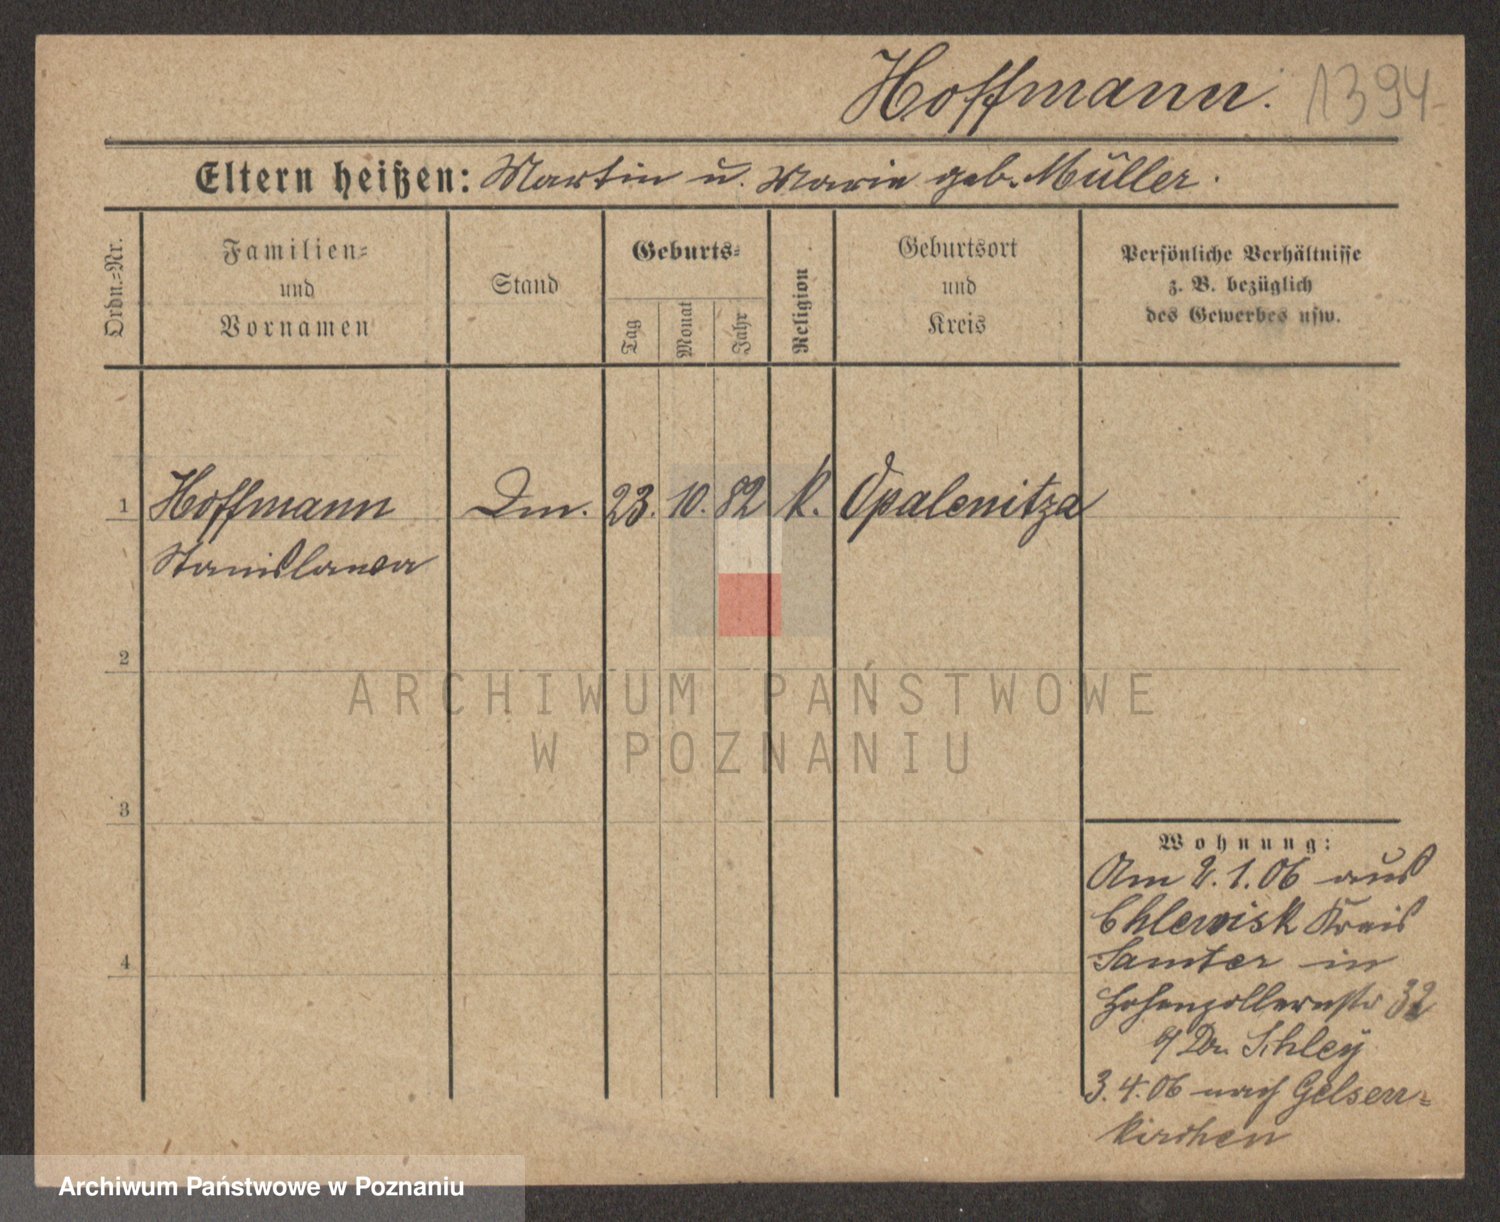 Hoffmann. 1394
Eltern heißen: Martin u. Marie geb. Müller.
Ordn.=Nr.
Familien=
und
Vornamen
Stand
Geburts=
Tag
Monat
Jahr
Religion
Geburtsort
und
Kreis
Persönliche Verhältnisse
z. B. bezüglich
des Gewerbes usw.
1 Hoffmann Dm. 23. 10. 82 k. Opalenitza
Stanislawa
2
3
4
Wohnung:
Am 2.1.06 aus
Chlewisk Kreis
Samter in
Hohenzollernstr 32
Dr. Schley
3.4.06 nach Gelsen=
kirchen
ARCHIWUM PAŃSTWOWE
W POZNANIU
Archiwum Państwowe w Poznaniu